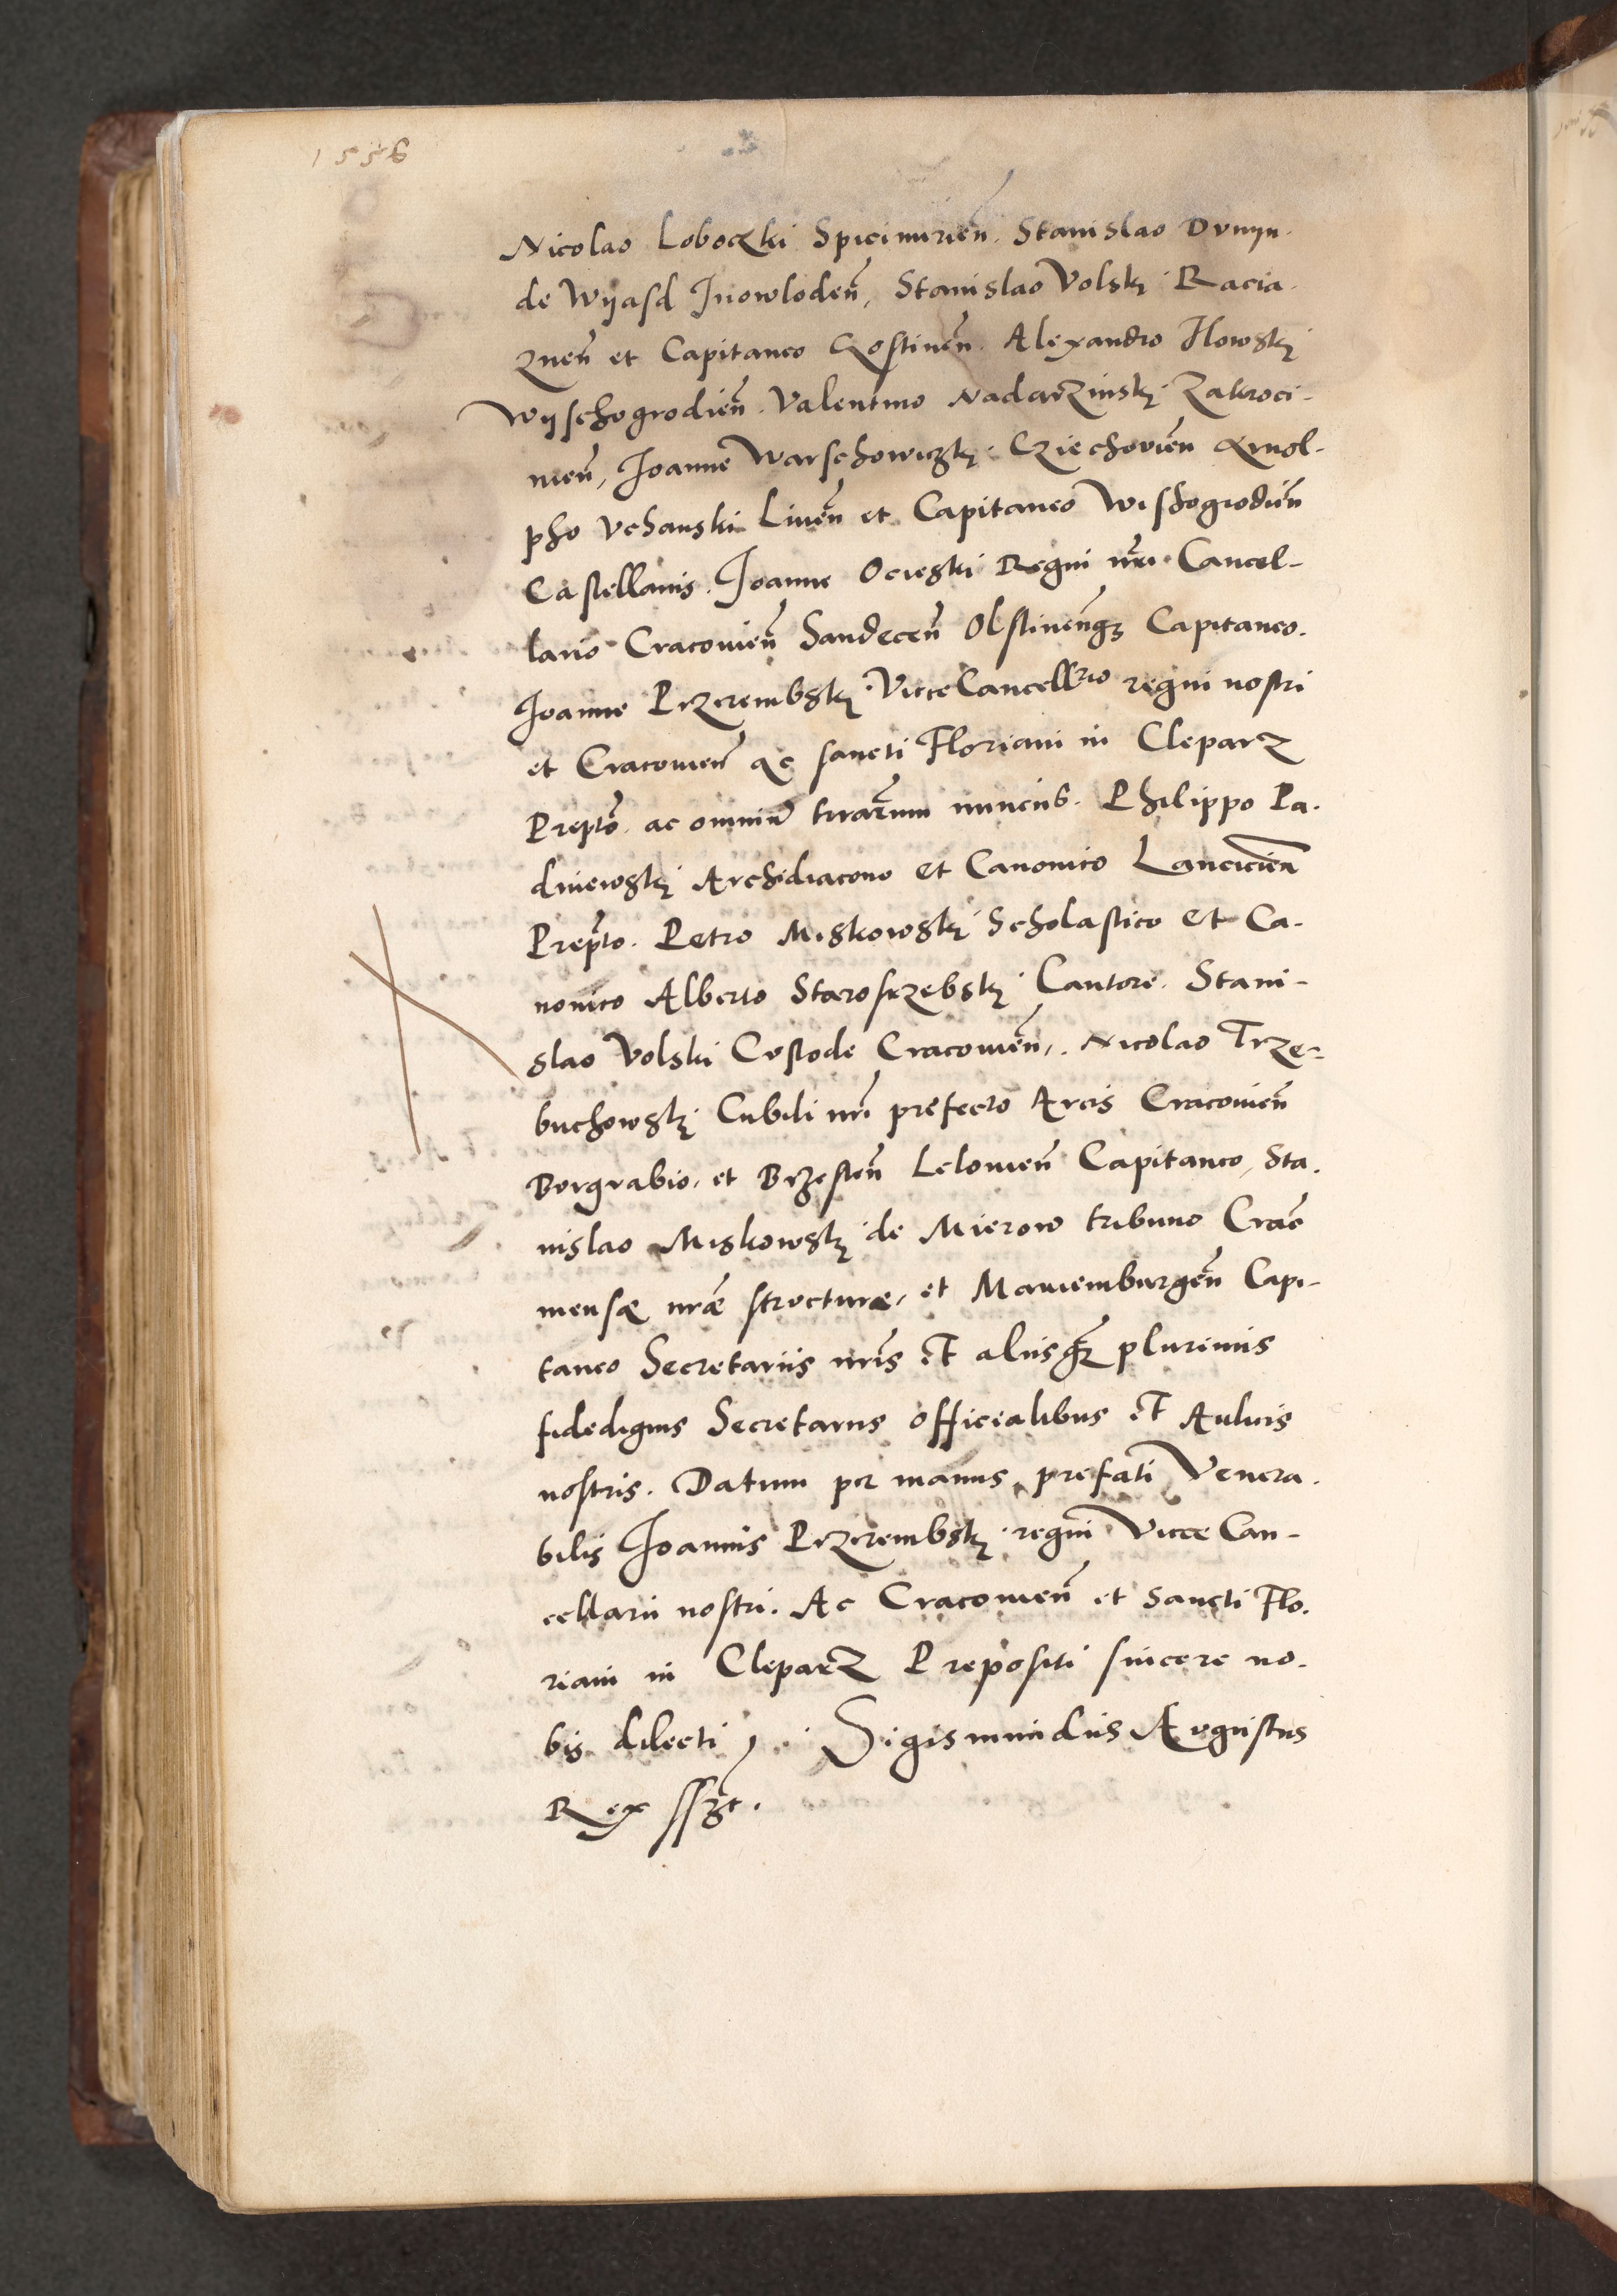 1556
Nicolao Loboczki Spicimirien̄. Stanislao Dvnyn
de Wyasd Inowloden̄, Stanislao Volskj Racia-
znen̄ et Capitaneo Gostinen̄. Alexandro Ilowskj
Wyschogrodien̄. Valentino Nadarzinskj Zakroci-
men̄, Joanne Warschowiczkj. Cziechovien̄ Arnol-
pho Vchanski Liuen̄ et Capitaneo Wischogrodien̄
Castellanis. Joanne Ocieski Regni nr̄i Cancel-
lario Cracouien̄ Sandecen̄ Olstinen̄q3 Capitaneo.
Joanne Przerembskj Vicecancellrio regni nostri
et Cracouien̄ ac sancti Floriani in Cleparz
Prepto. ac omniu terrarum nunciis. Philippo Pa-
dniewskj Archidiacono et Canonico Lancicien̄
Prepto. Petro Miskowskj Scholastico et Ca-
nonico Alberto Starosrzebskj Cantore. Stani-
slao Volski Custode Cracouien̄. Nicolao Trze-
buchowskj Cubili nr̄i prefecto Arcis Cracouien̄
Borgrabio, et Brzesten̄ Lelouien̄ Capitaneo, Sta-
nislao Miskowskj de Mierow tribuno Crac̄
mensæ nræ structuræ, et Mariemburgen̄ Capi-
taneo Secretariis nr̄is et aliisq3 plurimis
fidedignis Secretariis officialibus et Aulicis
nostris. Datum per manus prefati Venera-
bilis Joannis Przerembskj regni Vicecan-
cellarii nostri. Ac Cracouien̄ et Sancti Flo-
riani in Cleparz Prepositi sincere no-
bis dilecti. Sigismundus Augustus
Rex sszt.